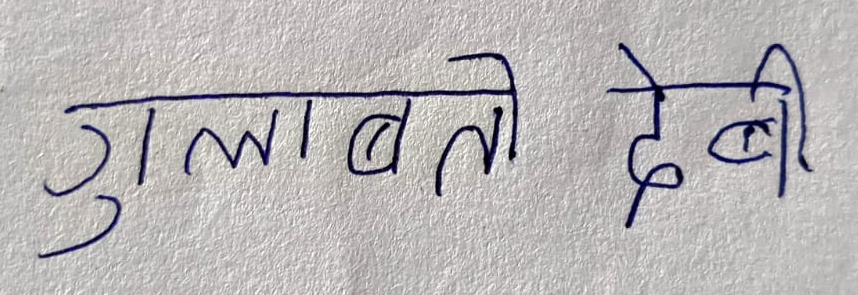 गुलाबती देबी